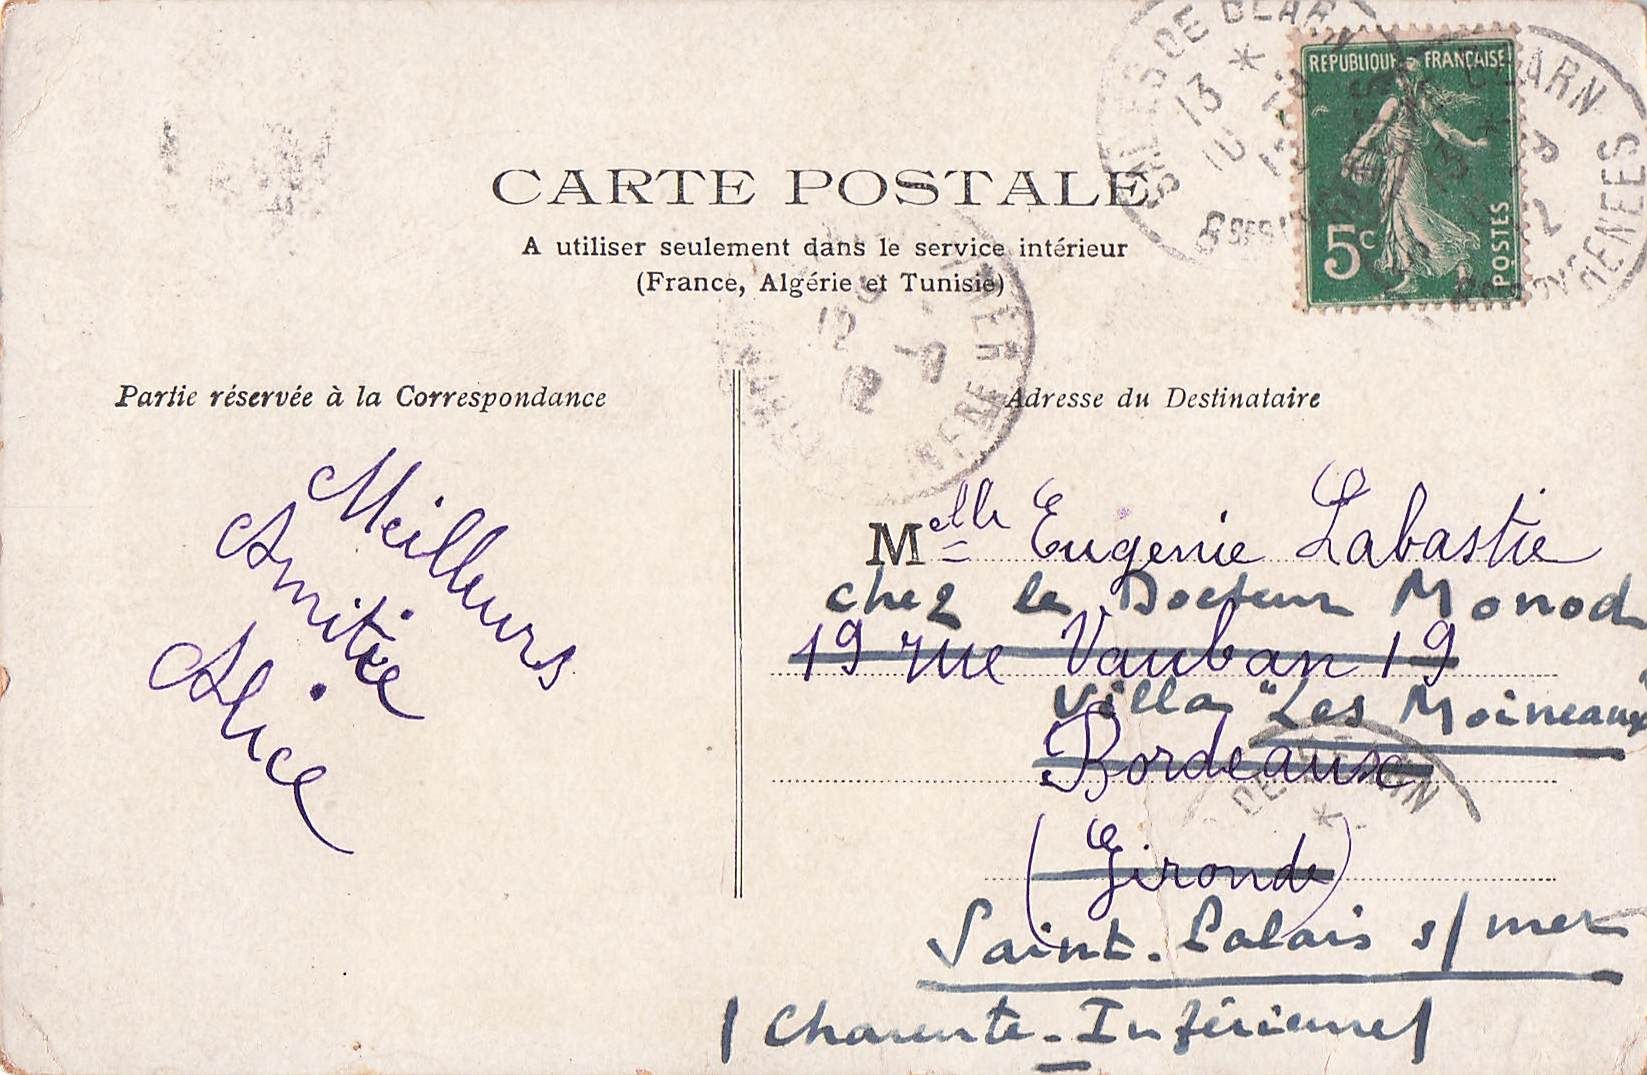 CARTE POSTALE
A utiliser seulement dans le service intérieur
(France, Algérie et Tunisie)
REPUBLIQUE FRANÇAISE
5c
POSTES
SALIES DE BEARN
Partie réservée à la Correspondance
Adresse du Destinataire
Meilleurs
Amitiée
Alice
Melle Eugenie Labastie
chez le Docteur Monod
19 rue Vauban 19
Villa "Les Moineaux"
Bordeaux
(Gironde)
Saint-Palais s/ mer
(Charente-Inférieure)